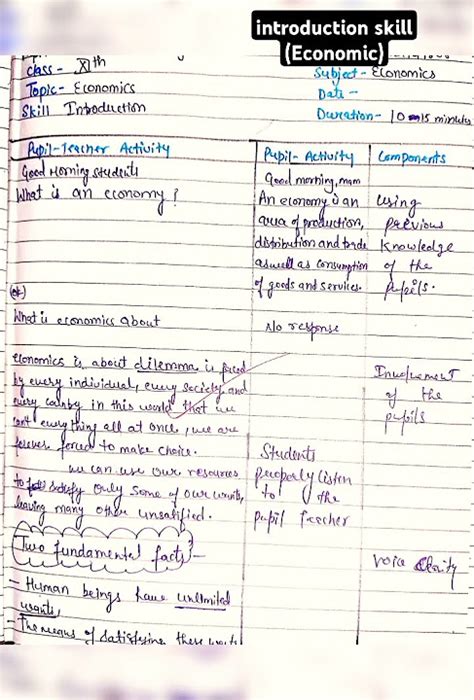 introduction skill
(Economic)
Class - XIth
Subject - Economics
Topic - Economics
Date -
Skill Introduction
Duration - 10-15 minutes
Pupil-Teacher Activity
Pupil-Activity
Components
Good Morning students
Good morning, mam
What is an economy?
An economy is an
area of production,
distribution and trade
as well as consumption
of goods and services.
Using
previous
knowledge
of the
pupils.
What is economics about
No response
economics is about dilemma is faced
by every individual, every society and
every country in this world that we
can't everything all at once, we are
forever forced to make choice.
we can use our resources
to satisfy only some of our wants,
leaving many other unsatified.
Involvement
of the
pupils
Students
properly listen
to the
pupil teacher
Two fundamental facts:-
Voice Clarity
- Human beings have unlimited
wants,
- The means of satisfying these wants